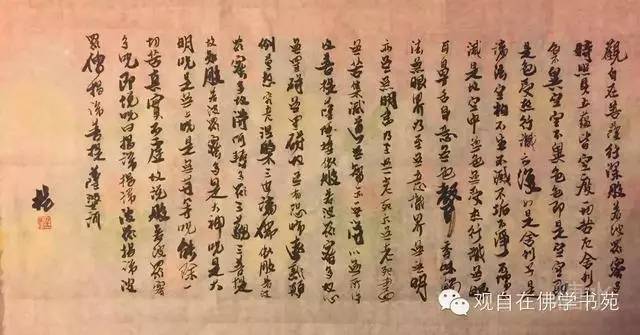 觀自在菩薩行深般若波羅蜜多
時照見五蘊皆空度一切苦厄舍利子
色不異空空不異色色即是空空即
是色受想行識亦復如是舍利子是
諸法空相不生不滅不垢不淨不增不
減是故空中無色無受想行識無眼
耳鼻舌身意無色聲香味觸
法無眼界乃至無意識界無無明
亦無無明盡乃至無老死亦無老死盡
無苦集滅道無智亦無得以無所得
故菩提薩埵依般若波羅蜜多故心
無罣礙無罣礙故無有恐怖遠離顛
倒夢想究竟涅槃三世諸佛依般若波
羅蜜多故得阿耨多羅三藐三菩提
故知般若波羅蜜多是大神咒是大
明咒是無上咒是無等等咒能除一
切苦真實不虛故說般若波羅蜜
多咒即說咒曰揭諦揭諦波羅揭諦波
羅僧揭諦菩提薩婆訶
观自在佛学书苑